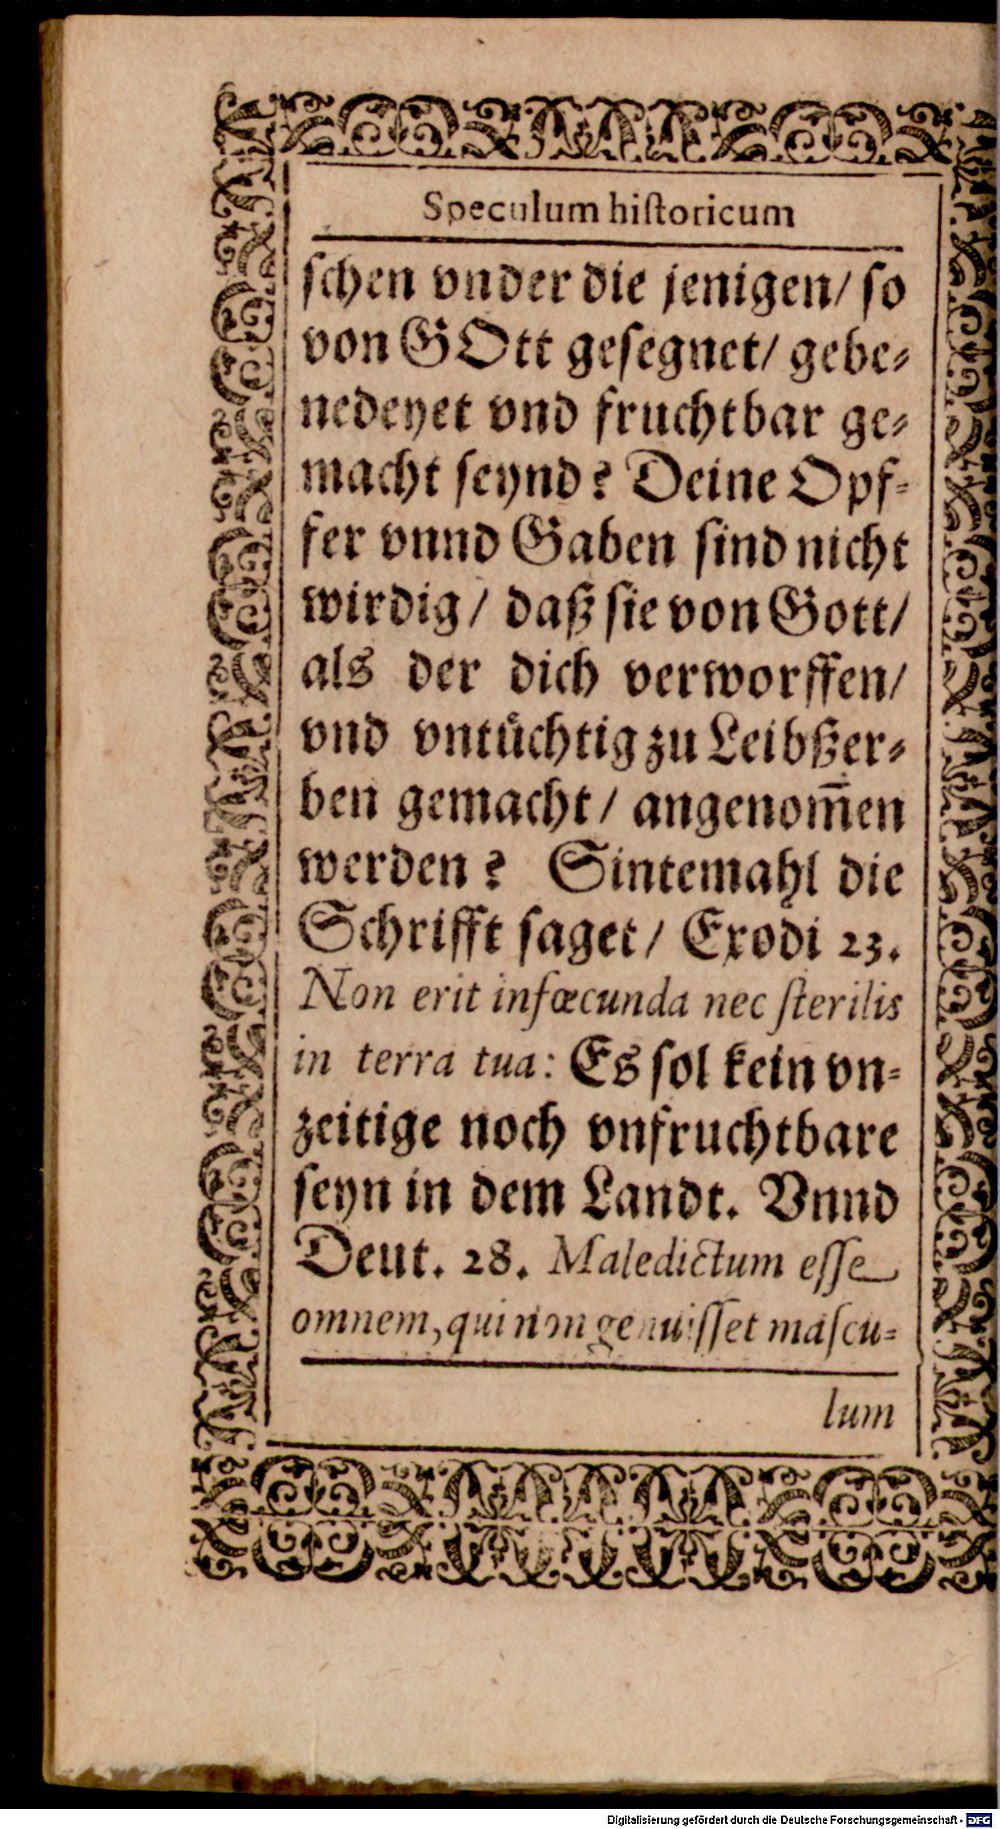 Speculum hiſtoricum
ſchen vnder die jenigen/ ſo
von GOtt geſegnet/ gebe⸗
nedeyet vnd fruchtbar ge⸗
macht ſeynd? Deine Opf⸗
fer vnnd Gaben ſind nicht
wirdig/ daß ſie von Gott/
als der dich verworffen/
vnd vntuͤchtig zu Leibßer⸗
ben gemacht/ angenom̃en
werden? Sintemahl die
Schrifft ſaget/ Exodi 23.
Non erit infœcunda nec ſterilis
in terra tua: Es ſol kein vn⸗
zeitige noch vnfruchtbare
ſeyn in dem Landt. Vnnd
Deut. 28. Maledictum eſſe
omnem, qui non genuiſſet maſcu⸗
lum
Digitalisierung gefördert durch die Deutsche Forschungsgemeinschaft - DFG